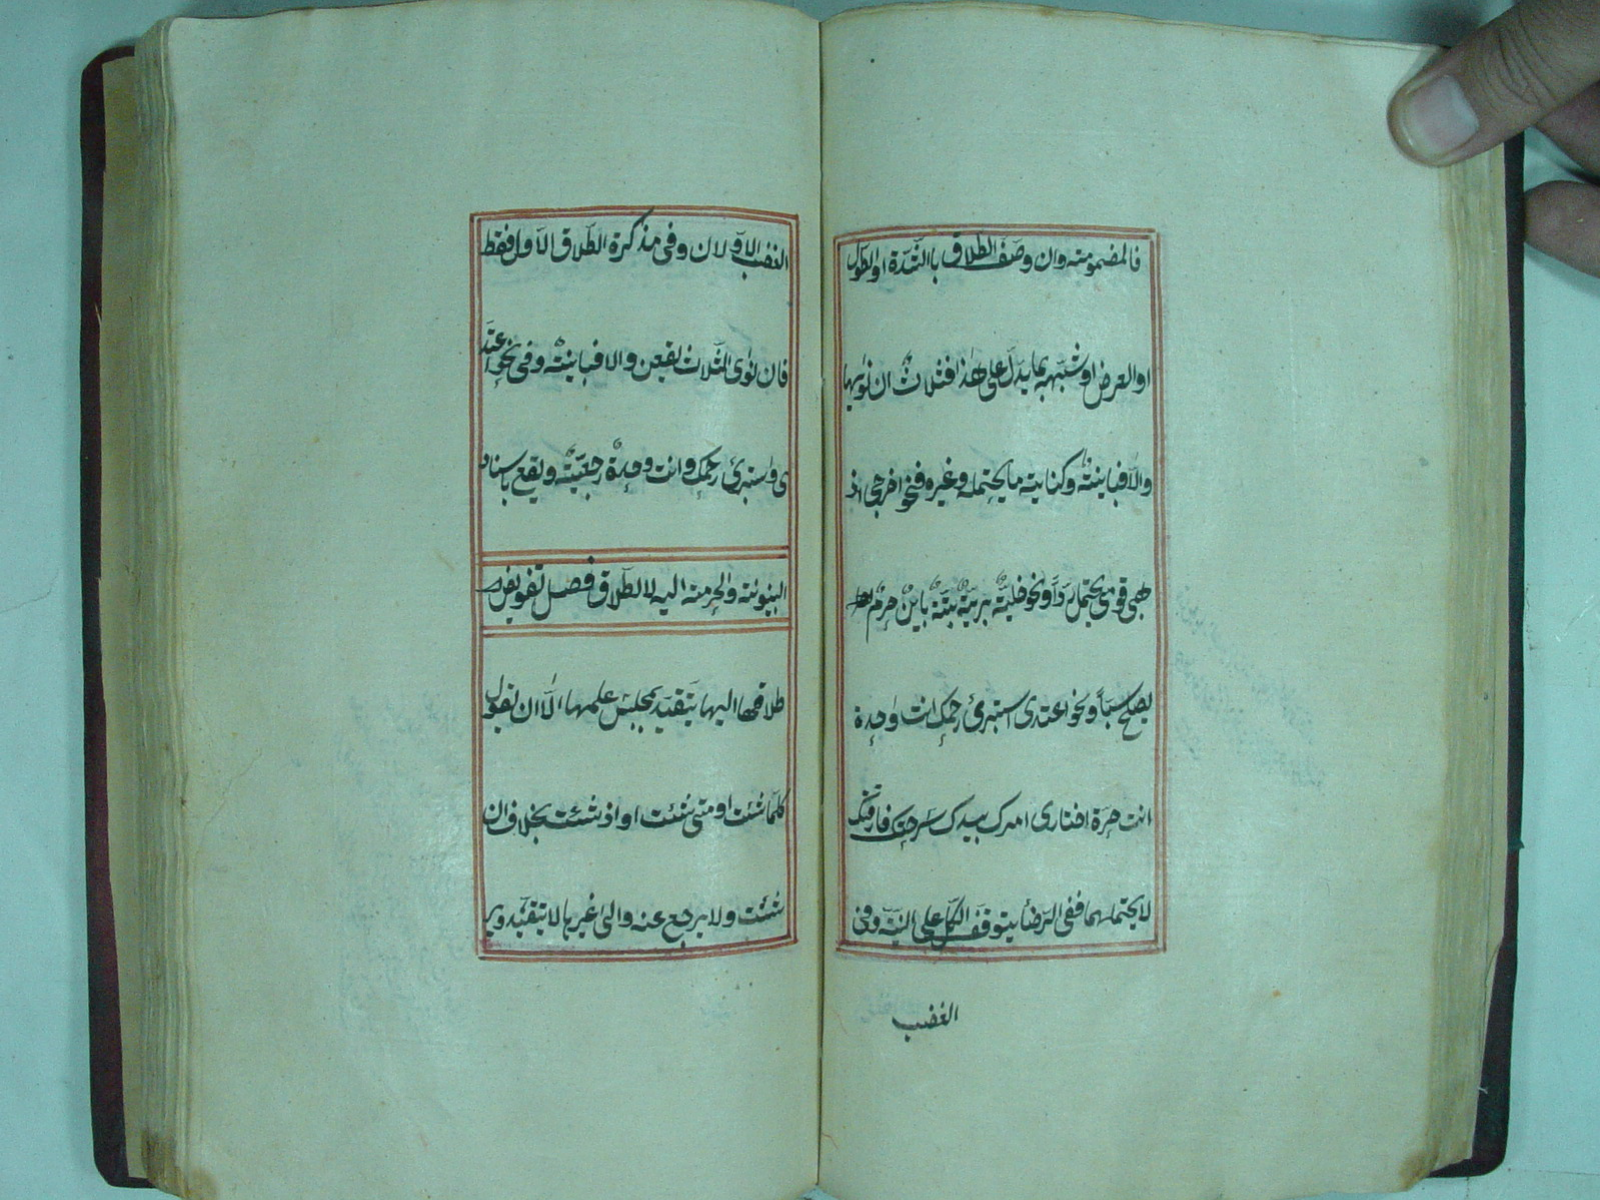 فالمضمومته وان وصف الطلاق باالشدة اوالطول
اوالعرض اوشبهه بما يدل على هذا فثلاث ان نوٰيها
والا فباينته وكنايته ما يحتمله وغيره فنحو اخرجى اذ
هبى قومى يحتمل ردًّا ونحو خليته بريته بتته باين حرم
يصلح سبًّا ونحو اعتدى استبرئ رحمك انت واحدة
انت حرة اختارى امرك بيدك سرحتك فارقتك
لا يحتملهما ففى الرضا يتوقف الكل على النيته وفى
الغضب
الغضب الاولان وفى مذكرة الطلاق الاول فقط
فان نوى الثلاث يقعن والا فباينته وفى نحو اعتد
ى واستبرئ رحمك وانت وحدة رجعيته ويقع باسناد
البينونته والحرمته اليه لا الطلاق فصل تفويض
طلاقها اليها يتقيد بمجلس علمها الا ان يقول
كلما شئت او متى شئت او اذ شئت بخلاف ان
شئت ولا يرجع عنه والى غيرها لا يتقيد وير